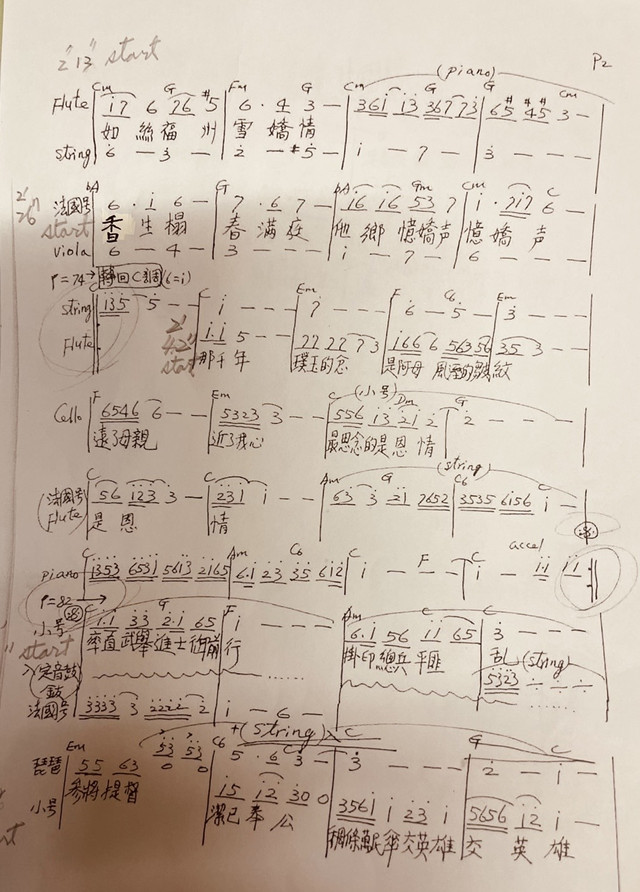 2'13" start
(piano)
P2
Cm G Fm G Cm G Cm
Flute 17 6 76 #5 6 · 4 3 — 361 13 367 73 6#5 #4#5 3 —
如 絲福 州 雪 嬌 情
string 6 — 3 — 2 — #5 — i — 7 — 3 — — —
2'26" start
bA G bA Gm Cm C
法國號 6 · i 6 — 7 · 6 7 — 16 16 53 7 i · 717 6 —
香 生 榻 春 滿 庭 他 鄉 憶嬌声 憶 嬌 声
viola 6 — 4 — 3 — — — i — 7 — 6 — — —
P=74→ 轉回C調 (6=i)
C C Em F C6 Em
string 135 5 — — i — — — 7 — — — 6 — 5 — 3 — — —
Flute 1·1 5 — — 22 22 7 3 166 6 563 56 35 3 — —
2'42" start
那千年 璞玉的念 是阿母 風霜的皺紋
(小号)
F Em C Dm G
Cello 6546 6 — — 5323 3 — — 556 13 21 2 2 — — —
遠了母親 近了我心 最思念的是恩 情
(string)
C C Am G C6
(法國号) Flute 56 123 3 — 231 i — — 63 3 21 7652 3535 6156 i —
是 恩 情
C Am C6 C F C accel
piano 1353 6531 5613 2165 6·1 23 35 612 i — — — i — 11 11
P=82→
C G F Am C C
小号 1·1 33 2·1 65 i — — — 6·1 56 11 65 3 — — —
start
率直武舉進士御前 行 掛印總兵平匪 乱 (string)
(定音鼓) 5323
法國号 3333 3 2222 2 i — 6 —
+(string)
Em 53 53 C6 C C G C
琵琶 55 63 0 0 5 · 6 3 — 3 — — — 2 — i —
參將提督
小号 15 12 30 0 3561 i 23 i 5656 12 i —
潔己奉 公 傘交英雄 交 英 雄